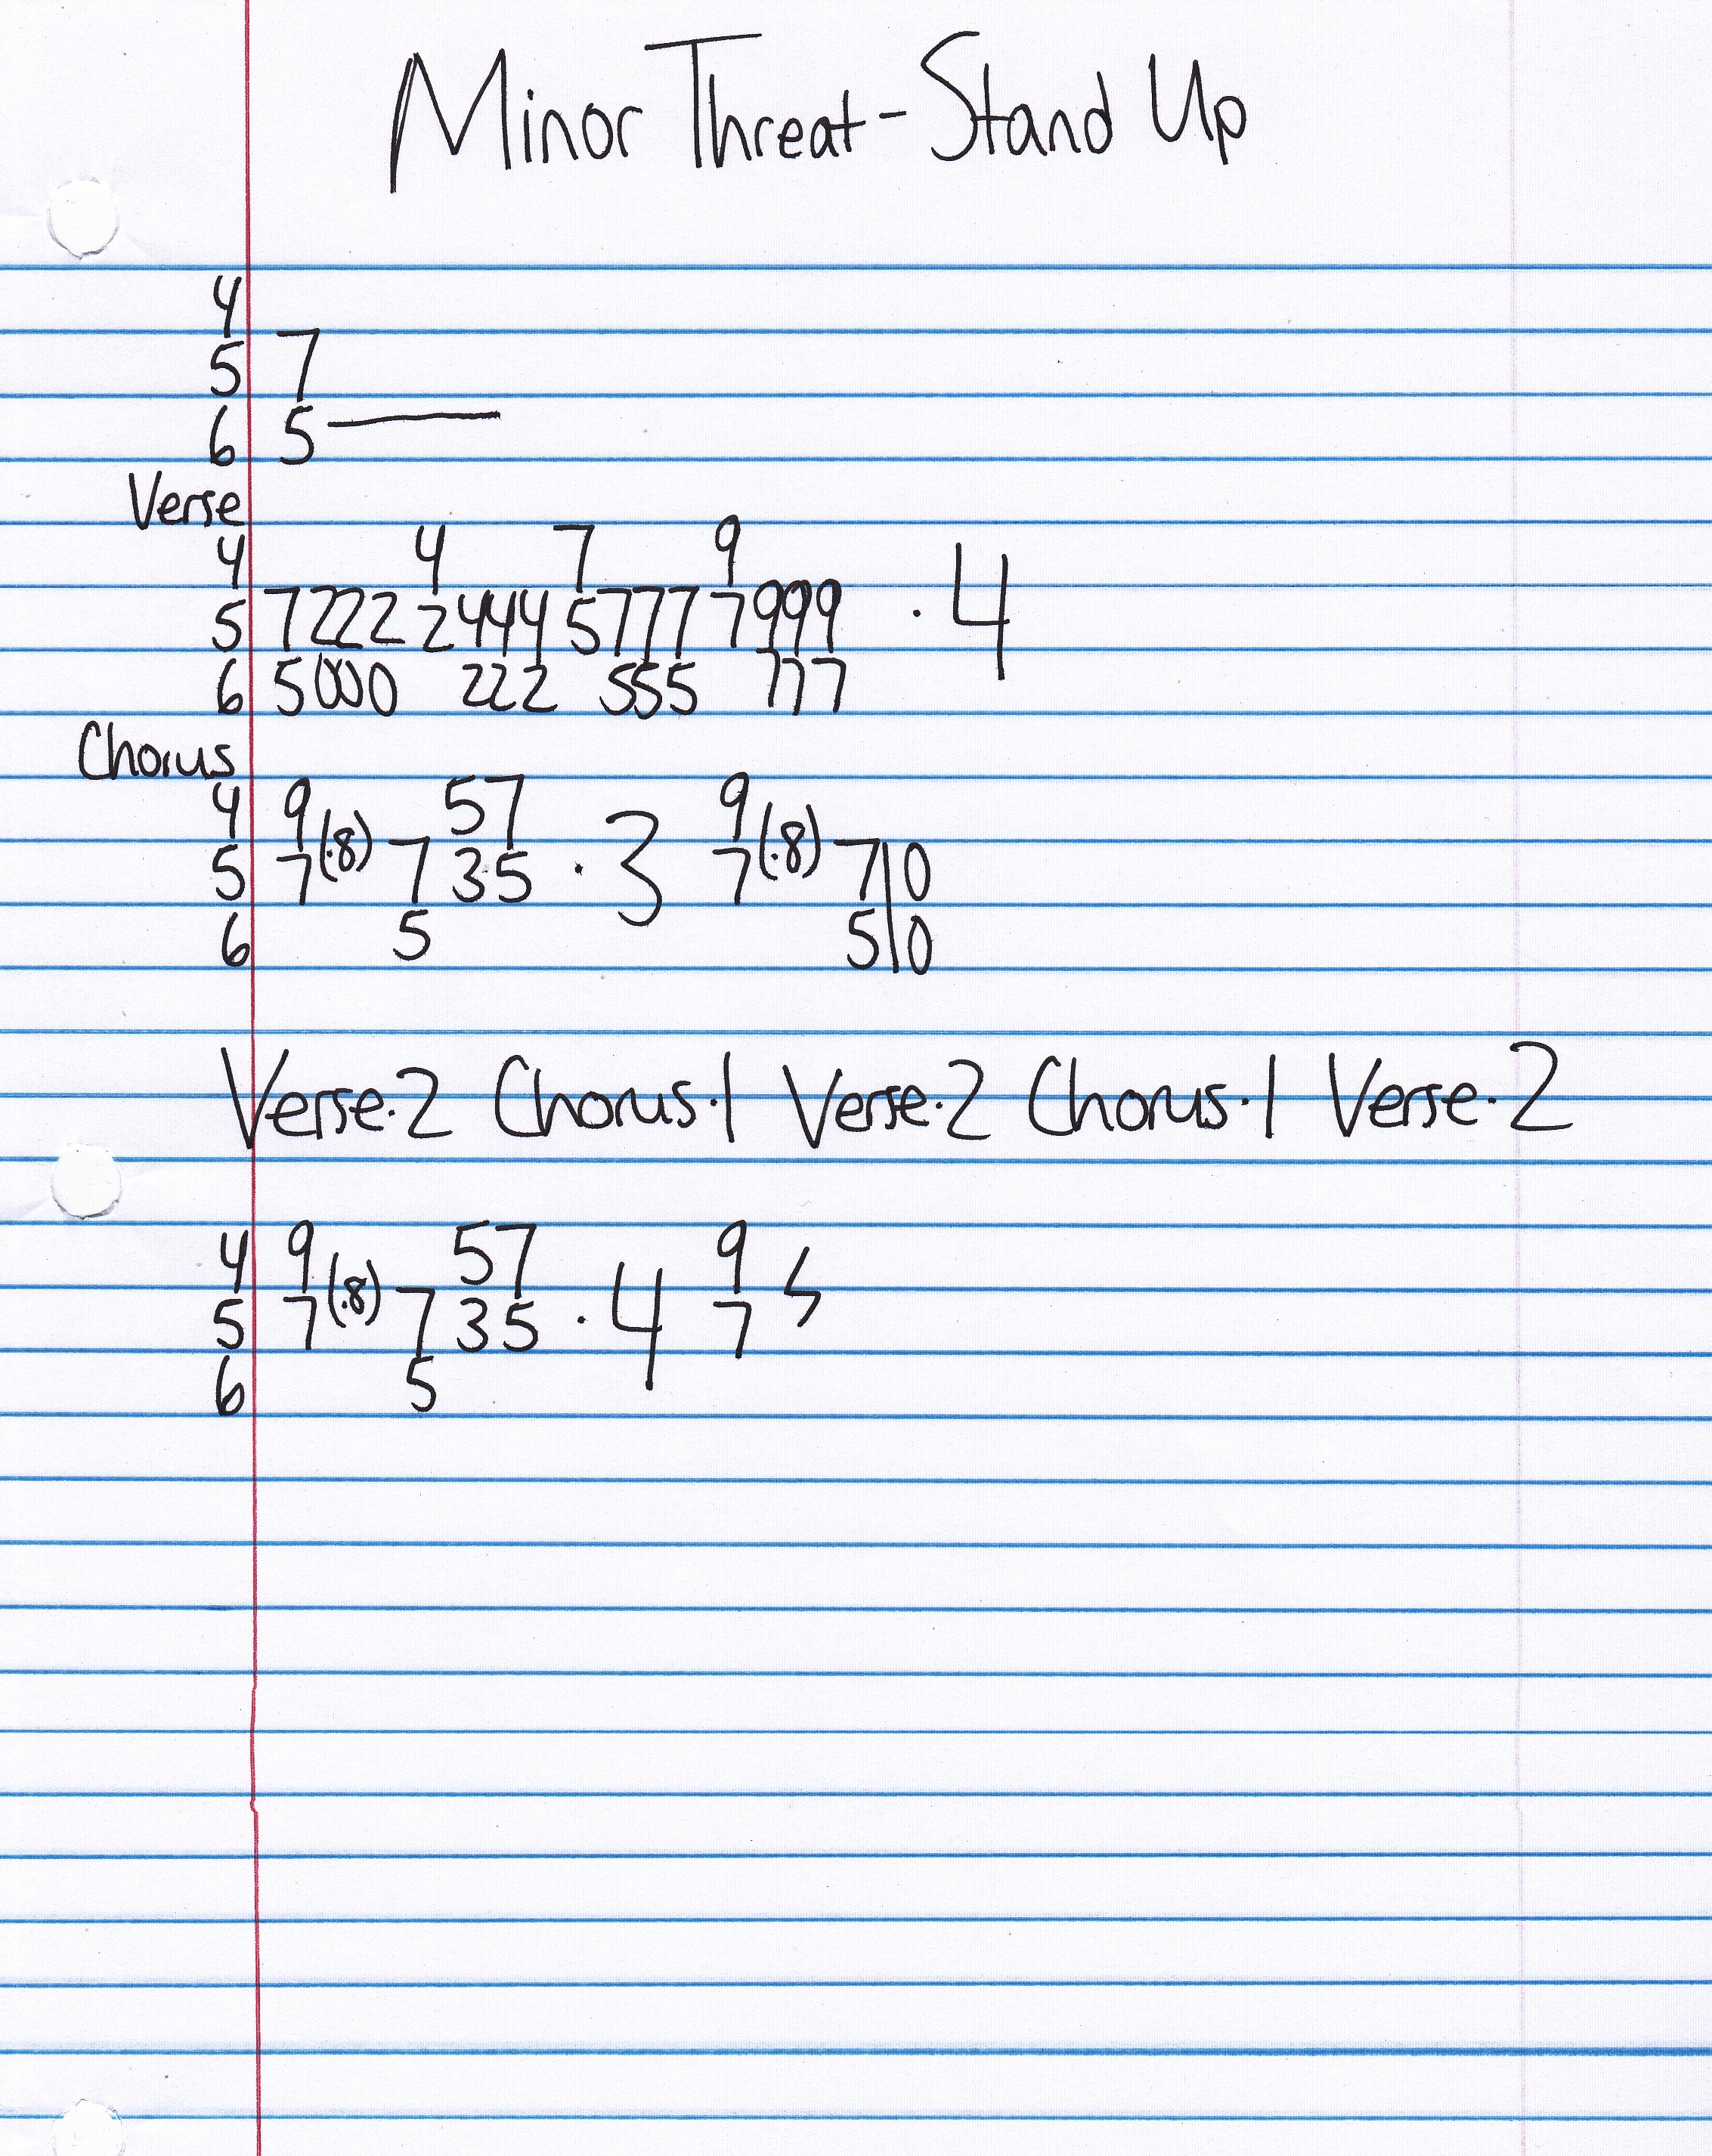 Minor Threat - Stand Up
4
5 7
6 5 ―
Verse
4 4 7 9
5 7222 2444 5777 7999 · 4
6 5000 222 555 777
Chorus
4 9 57 9
5 7 (·8) 7 3·5 · 3 7 (·8) 7|0
6 5 5|0
Verse·2 Chorus·1 Verse·2 Chorus·1 Verse·2
4 9 57 9
5 7 (·8) 7 35 · 4 7
6 5